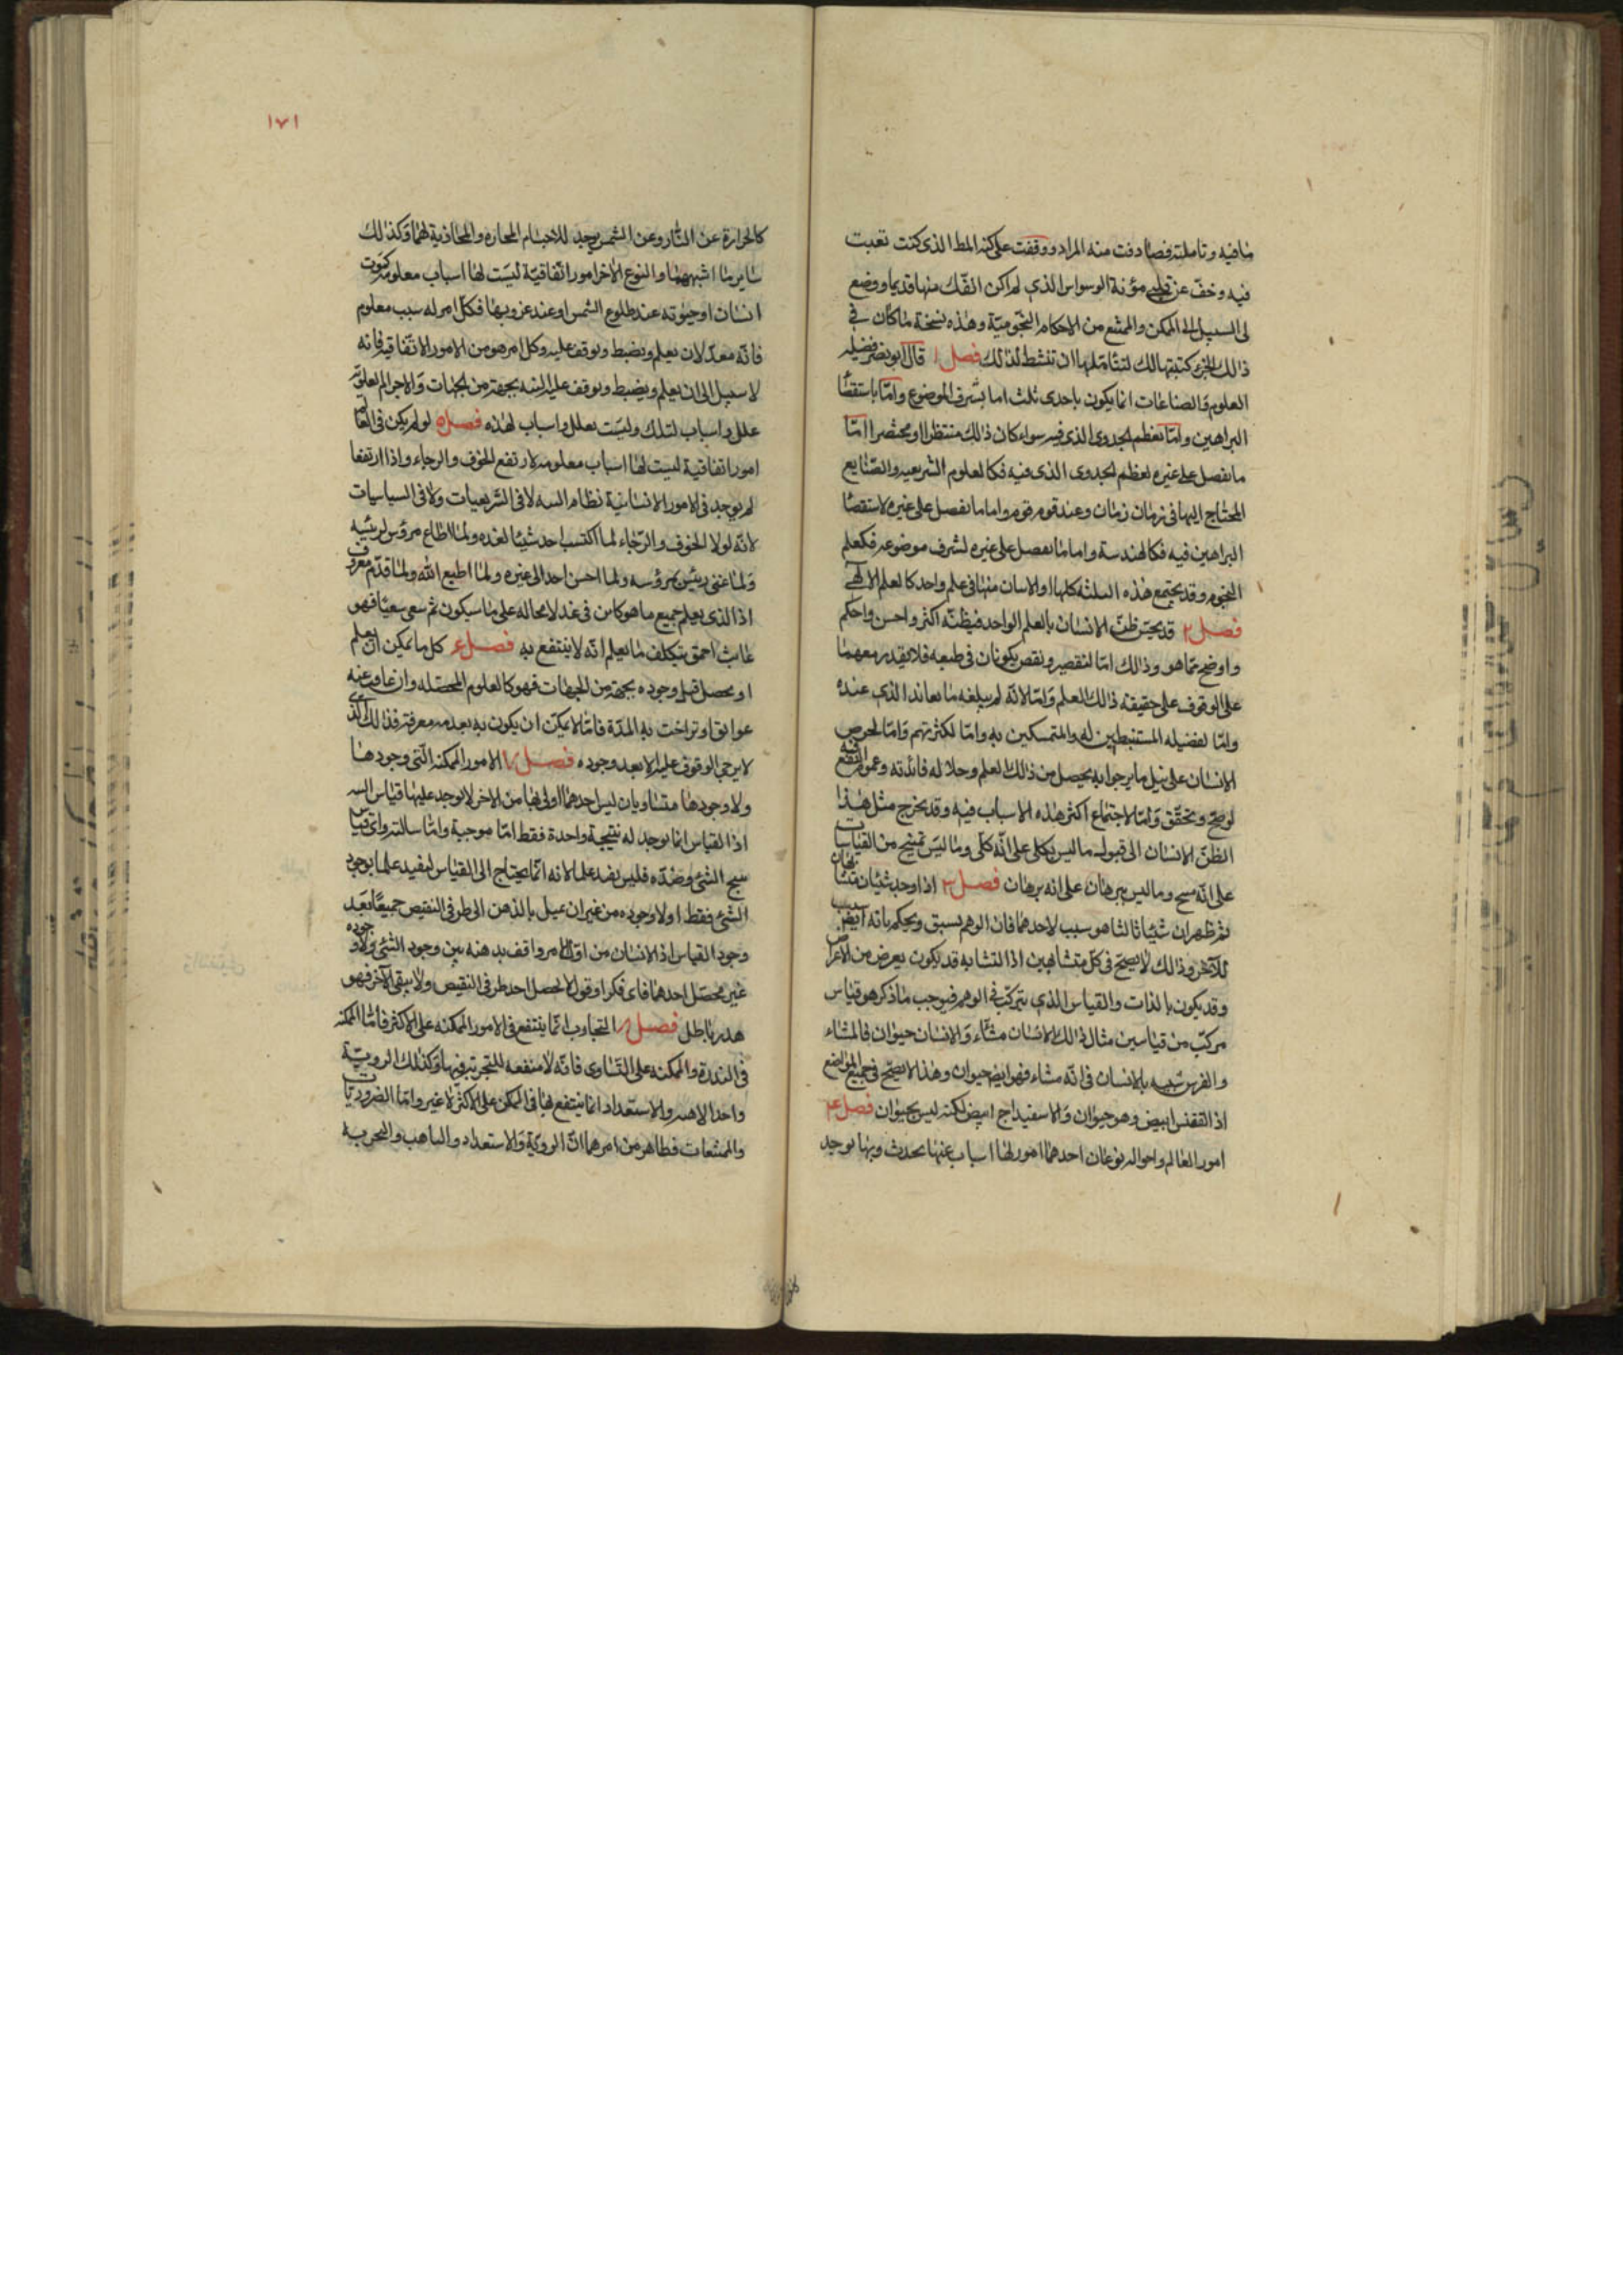 مافيه وتاملته فصادفت منه المراد ووقفت على كنه المط الذى كنت تعبت
فيه وخفّ عن قلبى مؤنة الوسواس الذى لم اكن انفّك منها قديما ووضح
لى السبيل الى الممكن والممتنع من الاحكام النجوميّة وهذه نسخة ماكان فى
ذالك الجزء كتبتها لك لتتامّلها ان تنشط لذلك فصل ١ قال ابو نصر فضيلة
العلوم والصناعات انما يكون باحدى ثلث اما بشرف الموضوع وامّا باستقصاء
البراهين وامّا بعظم الجدوى الذى فيه سواء كان ذالك منتظرا او محتضرا امّا
مايفصل على غيره لعظم الجدوى الذى فيه فكالعلوم الشرعيه والصّنايع
المحتاج اليها فى زمان زمان وعند قوم قوم واما مايفصل على غيره لاستقصاء
البراهين فيه فكالهندسة واما مايفصل على غيره لشرف موضوعه فكعلم
النجوم وقد يجتمع هذه الثلثه كلها او الاسان منها فى علم واحد كالعلم الالهى
فصل ٢ قد يحسن ظنّ الانسان بالعلم الواحد فيظنّه اكثر واحسن واحكم
واوضح ممّا هو وذالك امّا لتقصير ونقص يكونان فى طبعه فلا يقدر معهما
على الوقوف على حقيقة ذالك العلم وامّا لانّه لم يبلغه ما يعاند الذى عنده
وامّا لفضيله المستنبطين له والمتمسكين به وامّا لكثرتهم وامّا لحرص
الانسان على نيل مايرجوا به يحصل من ذالك العلم وجلاله فائدته وعموم النفع فيه
لوصحّ وتحقّق وامّا لاجتماع اكثر هذه الاسباب فيه وقد يخرج مثل هذا
الظنّ الانسان الى قبول ماليس بكلى على انّه كلّى وماليس بمنتج من القياسات
على انّه منتج وماليس ببرهان على انه برهان فصل ٣ اذا وجد شيئان متشابهان
ثم ظهر ان شيئا ثالثا هو سبب لاحدهما فان الوهم يسبق ويحكم بانه ايض سبب
للآخر وذالك لا يصحّ فى كلّ متشابهين اذ التشابه قد يكون بعرض من الاعراض
وقد يكون بالذات والقياس الذى يتركّب فى الوهم فيوجب ماذكر هو قياس
مركّب من قياسين مثال ذالك الانسان مشّاء والانسان حيوان فالمشاء
والفرس شبيه بالانسان فى انّه مشاء فهو ايض حيوان وهذا لا يصحّ فى جميع المواضع
اذ القفنس ابيض وهو حيوان والاسفيداج ابيض لكنه ليس بحيوان فصل ٤
امور العالم واحواله نوعان احدهما امور لها اسباب عنها يحدث وبها يوجد
١٧١
كالحرارة عن النار وعن الشمس يوجد للاجسام المجاره والمحاذية لهما وكذالك
ساير ما اشبههما والنوع الاخر امور اتّفاقيّة ليست لها اسباب معلومه كموت
انسان او حيوته عند طلوع الشمس او عند غروبها فكلّ امر له سبب معلوم
فانّه معدّ لان يعلم ويضبط ويوقف عليه وكل امر هو من الامور الاتّفاقية فانه
لا سبيل الى ان يعلم ويضبط ويوقف عليه البته بجهة من الجهات والاجرام العلويّة
علل واسباب لتلك وليست بعلل واسباب لهذه فصل ٥ لو لم يكن فى العالم
امور اتفاقية ليست لها اسباب معلومه لارتفع الخوف والرجاء واذا ارتفعا
لم يوجد فى الامور الانسانية نظام البته لا فى الشرعيات ولا فى السياسيات
لانّه لولا الخوف والرّجاء لما اكتسب احد شيئا لغده ولما اطاع مرؤس لرئيسه
ولما عنى رئيس بمرؤسه ولما احسن احد الى غيره ولما اطيع الله ولما قدّم معروف
اذ الذى يعلم جميع ما هو كاين فى غد لا محاله على ما سيكون ثم سعى سعيا فهو
عابث احمق يتكلف ما يعلم انّه لا ينتفع به فصل ٦ كل ما يمكن ان يعلم
او يحصل قبل وجوده بجهة من الجهات فهو كالعلوم المحصّله وان عاق عنه
عوائق او تراخت به المدّة فامّا لا يمكن ان يكون به بعد معرفته فذالك الذى
لا يرجى الوقوف عليه الا بعد وجوده فصل ٧ الامور الممكنه الّتى وجودها
ولا وجودها متساويان ليس احدهما اولى بها من الاخر لا يوجد عليها قياس البته
اذ القياس انما يوجد له نتيجة واحدة فقط امّا موجبة وامّا سالبة واىّ قياس
ينتج الشئ وضدّه فليس يفيد علما لانه انّما يحتاج الى القياس ليفيد علما بوجود
الشئ فقط او لا وجوده من غير ان يميل بالذهن الى طرفى النقيض جميعًا بعد
وجود القياس اذ الانسان من اوّل الامر واقف بذهنه بين وجود الشئ ولا وجوده
غير محصّل احدهما فاى فكر او قول لا يحصل احد طرفى النقيض ولا يبقى الآخر فهو
هدر باطل فصل ٨ التجارب انّما ينتفع فى الامور الممكنه على الاكثر فامّا الممكنه
فى الندرة والممكنه على التّساوى فانّه لا منفعه للتجربة فيها وكذلك الرويّة
واخذ الاهبه والاستعداد انما ينتفع بها فى الممكن على الاكثر لا غير وامّا الضروريّات
والممتنعات فظاهر من امرهما انّ الرويّة والاستعداد والتاهب والتجربة